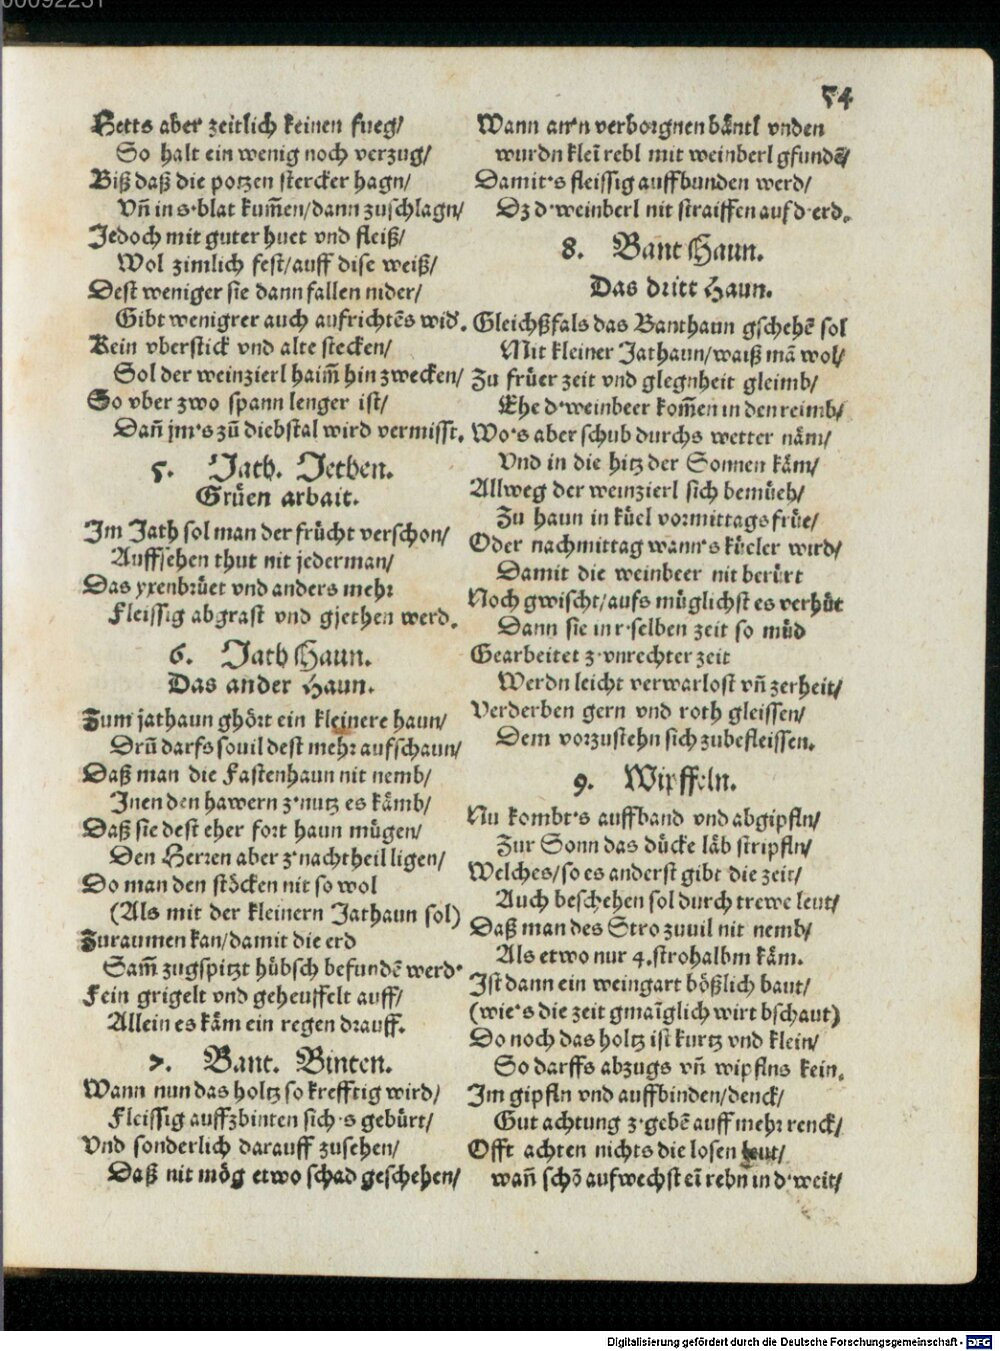 00092231
54
Hetts aber zeitlich keinen fueg/
So halt ein wenig noch verzug/
Biß daß die potzen stercker hagn/
Vñ in s·blat kum̃en/dann zuschlagn/
Jedoch mit guter huet vnd fleiß/
Wol zimlich fest/auff dise weiß/
Dest weniger sie dann fallen nider/
Gibt wenigrer auch aufrichtẽs wid'.
Kein vberstick vnd alte stecken/
Sol der weinzierl haim̃ hin zwecken/
So vber zwo spann lenger ist/
Dañ jm's zů diebstal wird vermisst.
5. Jath. Jethen.
Grüen arbait.
Im Jath sol man der frücht verschon/
Auffsehen thut nit jederman/
Das yxenbrüet vnd anders mehr
Fleissig abgrast vnd gjethen werd.
6. Jath Haun.
Das ander Haun.
Zum jathaun ghört ein kleinere haun/
Drũ darfs souil dest mehr aufschaun/
Daß man die Fastenhaun nit nemb/
Inen den hawern z'nutz es kämb/
Daß sie dest eher fort haun mügen/
Den Herren aber z'nachtheil ligen/
Do man den stöcken nit so wol
(Als mit der kleinern Jathaun sol)
Zuraumen kan/damit die erd
Sam̃ zugspitzt hübsch befundẽ werd·
Fein grigelt vnd geheuffelt auff/
Allein es käm ein regen drauff.
7. Bant. Binten.
Wann nun das holtz so krefftig wird/
Fleissig auffzbinten sich·s gebürt/
Vnd sonderlich darauff zusehen/
Daß nit mög etwo schad geschehen/
Wann an'n verborgnen bäntl vnden
wurdn kleĩ rebl mit weinberl gfundẽ/
Damit's fleissig auffbunden werd/
Dz d·weinberl nit straiffen auf d·erd.
8. Bant Haun.
Das dritt Haun.
Gleichßfals das Banthaun gschehẽ sol
Mit kleiner Jathaun/waiß mã wol/
Zu früer zeit vnd glegnheit gleimb/
Ehe d'weinbeer kom̃en in den reimb/
Wo's aber schub durchs wetter näm/
Vnd in die hitz der Sonnen käm/
Allweg der weinzierl sich bemüeh/
Zu haun in küel vormittags früe/
Oder nachmittag wann's küeler wird/
Damit die weinbeer nit berürt
Noch gwischt/aufs müglichst es verhüt
Dann sie in r·selben zeit so müd
Gearbeitet z·vnrechter zeit
Werdn leicht verwarlost vñ zerheit/
Verderben gern vnd roth gleissen/
Dem vorzustehn sich zubefleissen.
9. Wipffeln.
Nu kombt's auffband vnd abgipfln/
Zur Sonn das dücke läb stripfln/
Welches/so es anderst gibt die zeit/
Auch beschehen sol durch trewe leut/
Daß man des Stro zuuil nit nemb/
Als etwo nur 4.strohalbm käm.
Ist dann ein weingart bößlich baut/
(wie's die zeit gmaĩglich wirt bschaut)
Do noch das holtz ist kurtz vnd klein/
So darffs abzugs vñ wipflns kein.
Im gipfln vnd auffbinden/denck/
Gut achtung z·gebẽ auff mehr renck/
Offt achten nichts die losen leut/
wañ schõ aufwechst eĩ rebn in d'weit/
Digitalisierung gefördert durch die Deutsche Forschungsgemeinschaft - DFG